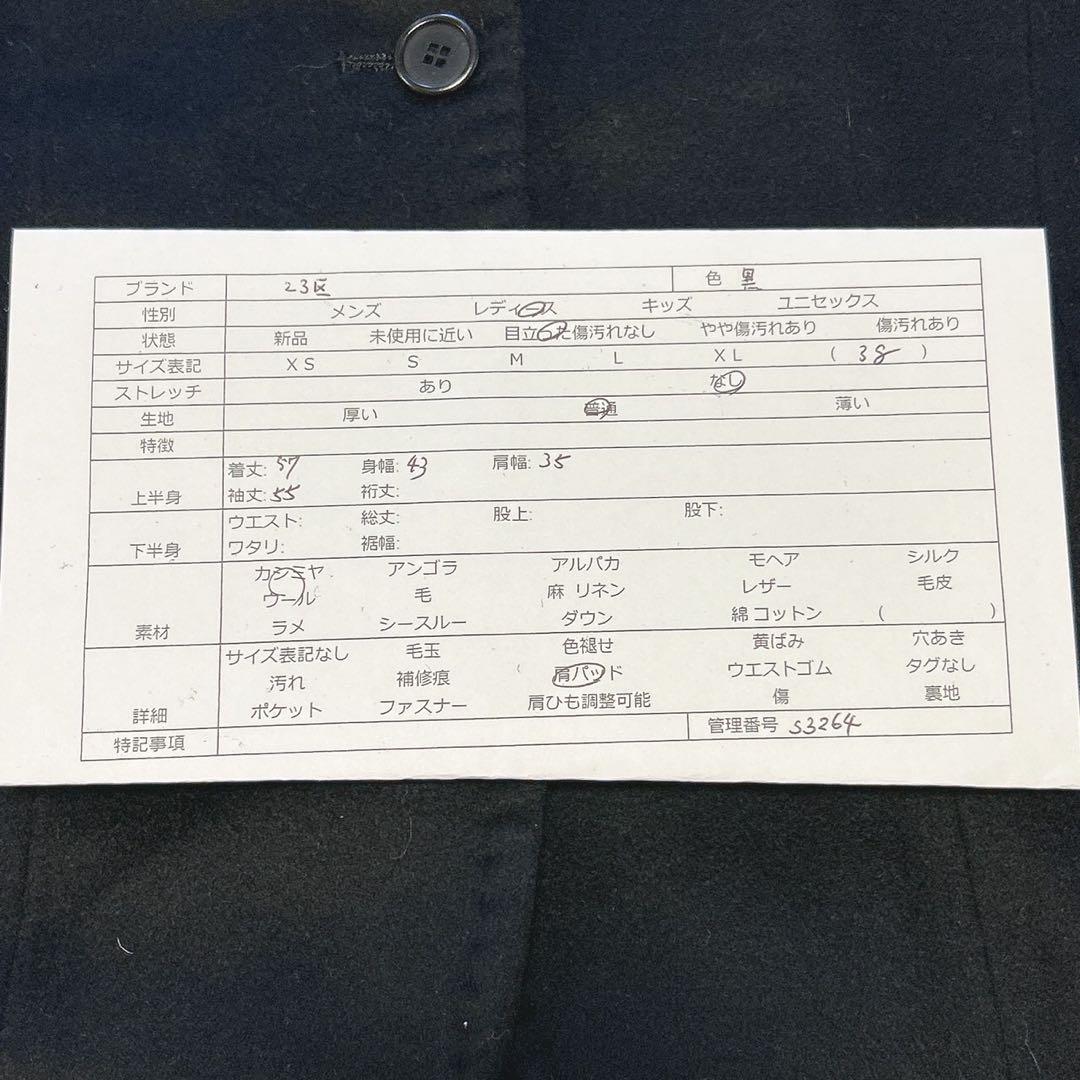 ブランド 23区 色 黒
性別 メンズ レディース キッズ ユニセックス
状態 新品 未使用に近い 目立った傷汚れなし やや傷汚れあり 傷汚れあり
サイズ表記 XS S M L XL ( 38 )
ストレッチ あり なし
生地 厚い 普通 薄い
特徴
上半身 着丈: 57 身幅: 43 肩幅: 35
袖丈: 55 裄丈:
下半身 ウエスト: 総丈: 股上: 股下:
ワタリ: 裾幅:
素材 カシミヤ アンゴラ アルパカ モヘア シルク
ウール 毛 麻 リネン レザー 毛皮
ラメ シースルー ダウン 綿 コットン ( )
詳細 サイズ表記なし 毛玉 色褪せ 黄ばみ 穴あき
汚れ 補修痕 肩パッド ウエストゴム タグなし
ポケット ファスナー 肩ひも調整可能 傷 裏地
特記事項 管理番号 S3264